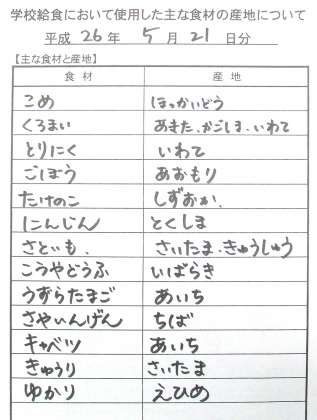 学校給食において使用した主な食材の産地について
平成 26 年 5 月 21 日分
【主な食材と産地】
食材 産地
こめ ほっかいどう
くろまい あきた.かごしま.いわて
とりにく いわて
ごぼう あおもり
たけのこ しずおか.
にんじん とくしま
さといも. さいたま.きゅうしゅう
こうやどうふ いばらき
うずらたまご あいち
さやいんげん ちば
キャベツ あいち
きゅうり さいたま
ゆかり えひめ